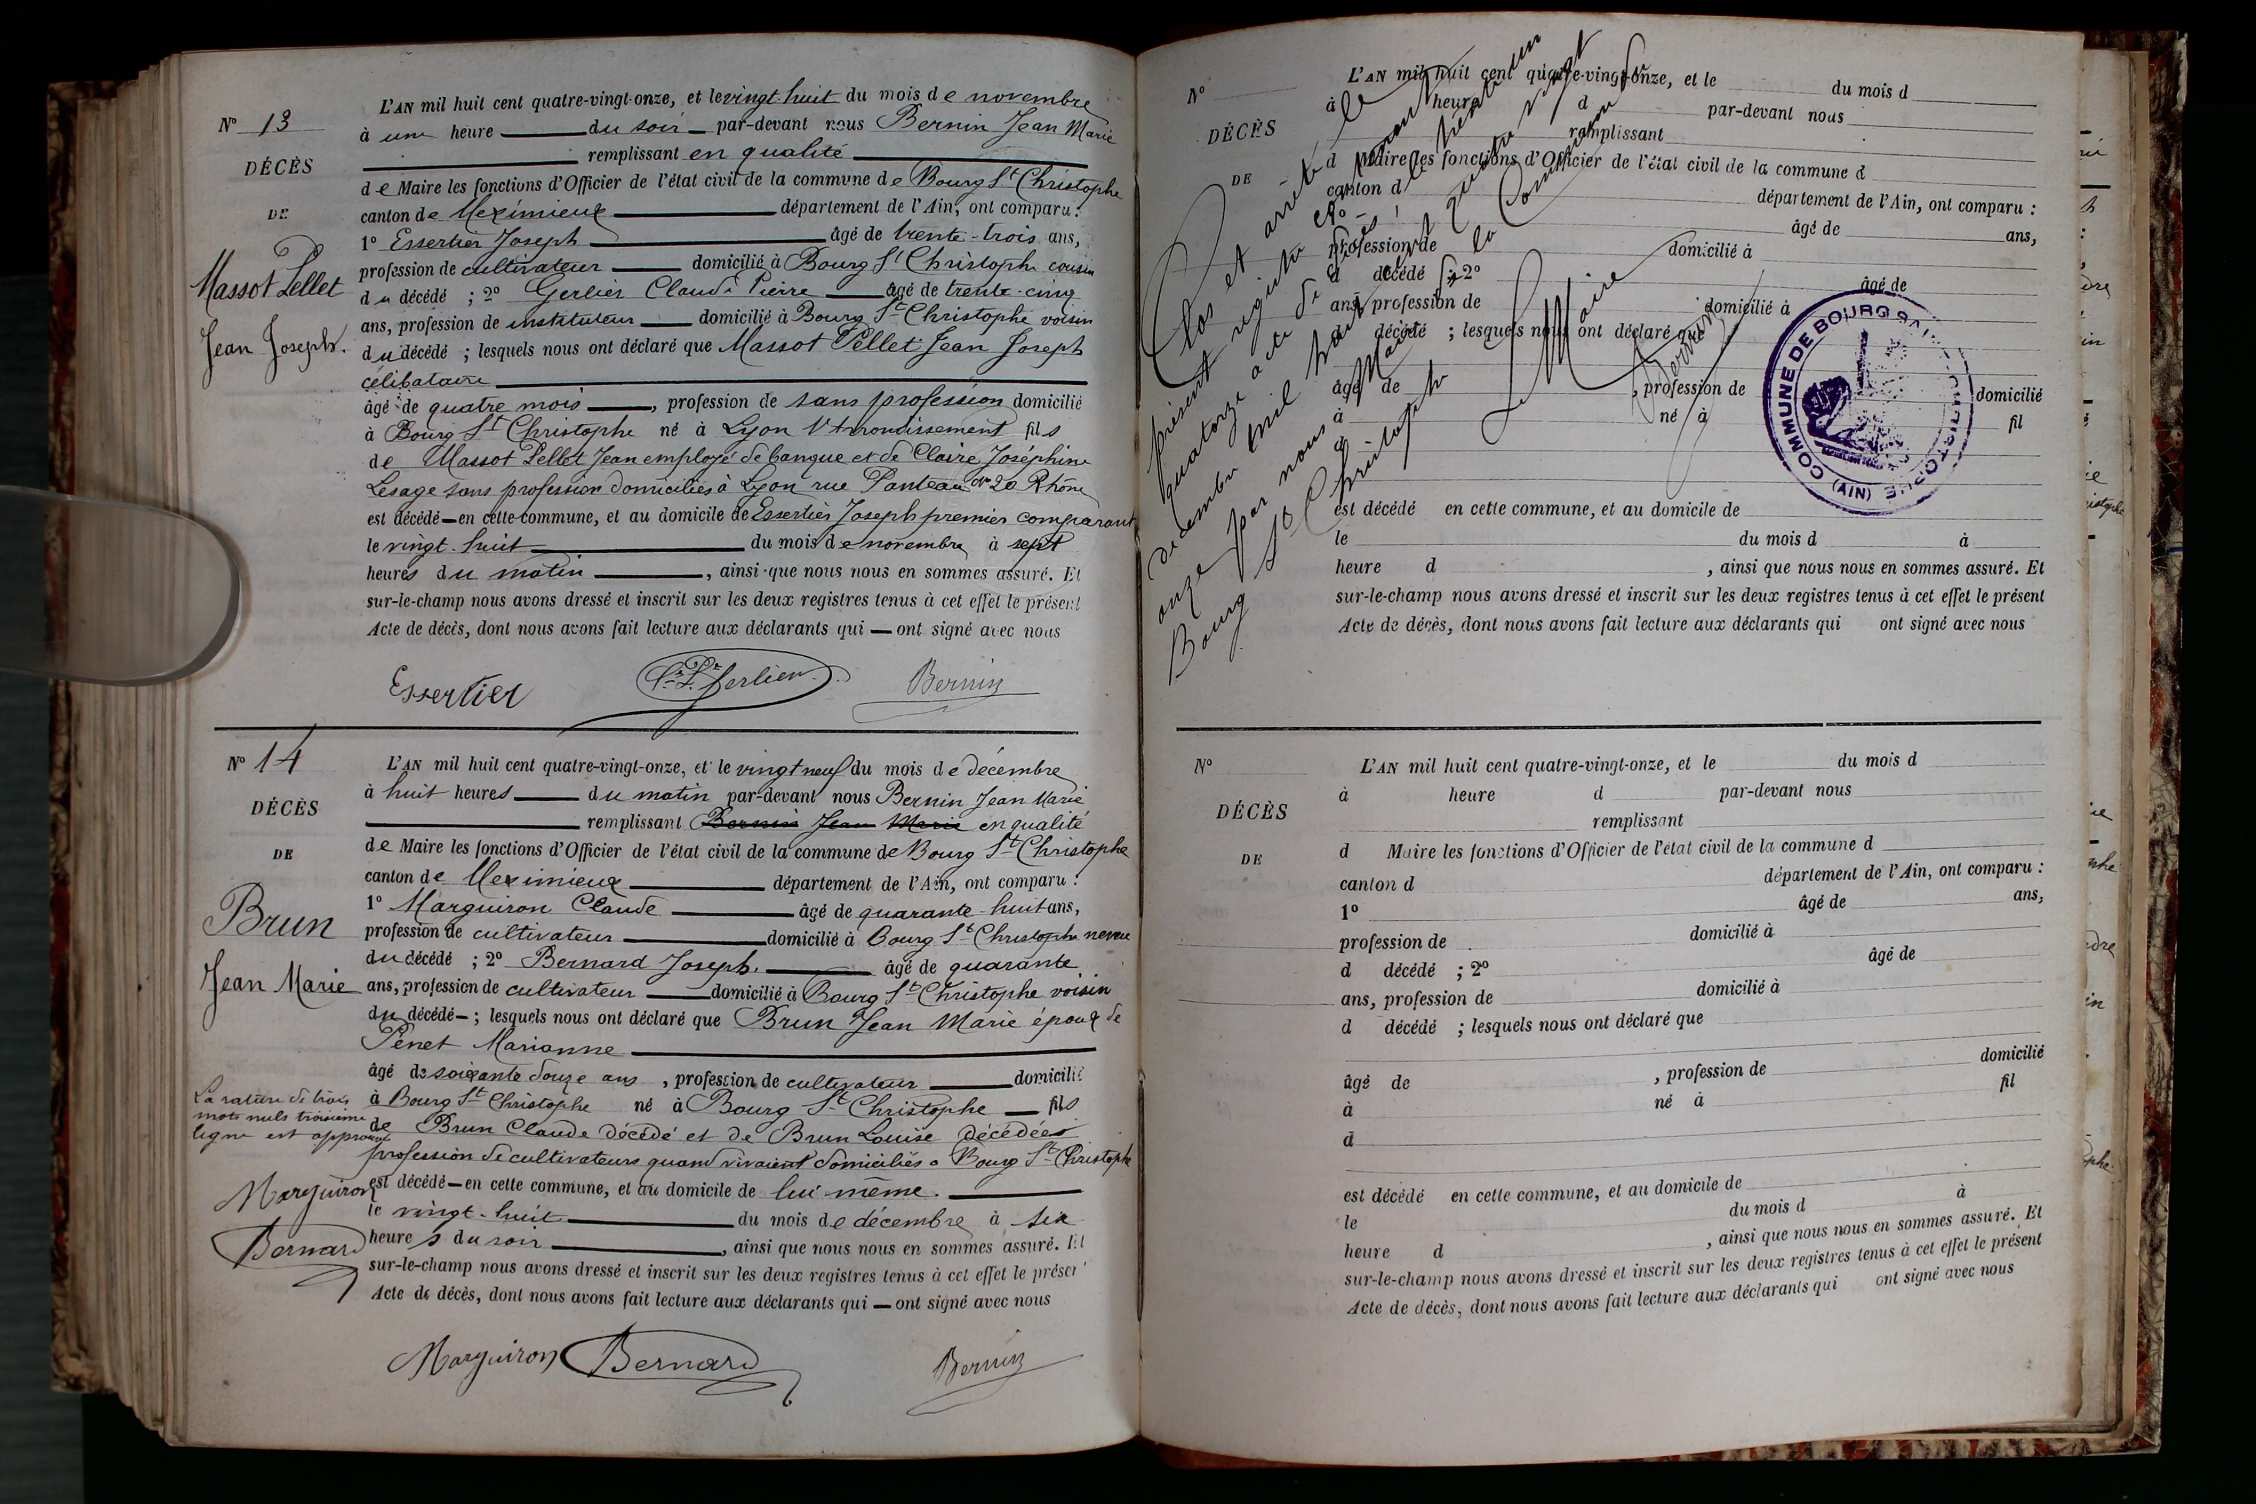 L'AN mil huit cent quatre-vingt-onze, et le vingt-huit du mois de novembre
N° 13
à une heure du soir par-devant nous Bernin Jean Marie
DÉCÈS
remplissant en qualité
de Maire les fonctions d'Officier de l'état civil de la commune de Bourg St Christophe
DE
canton de Meximieux département de l'Ain, ont comparu :
1° Essertier Joseph âgé de trente-trois ans,
Massot Pellet
profession de cultivateur domicilié à Bourg St Christophe cousin
du décédé ; 2° Gerlier Claude Pierre âgé de trente-cinq
ans, profession de instituteur domicilié à Bourg St Christophe voisin
Jean Joseph.
du décédé ; lesquels nous ont déclaré que Massot Pellet Jean Joseph
célibataire
âgé de quatre mois, profession de sans profession domicilié
à Bourg St Christophe né à Lyon 1er Arrondissement fils
de Massot Pellet Jean employé de banque et de Claire Joséphine
Lesage sans profession domiciliés à Lyon rue N° 20 Rhône
est décédé en cette commune, et au domicile de Essertier Joseph premier comparant
le vingt-huit du mois de novembre à sept
heures du matin, ainsi que nous nous en sommes assuré. Et
sur-le-champ nous avons dressé et inscrit sur les deux registres tenus à cet effet le présent
Acte de décès, dont nous avons fait lecture aux déclarants qui ont signé avec nous
Essertier Cl. P. Gerlier Bernin
N° 14
L'AN mil huit cent quatre-vingt-onze, et le vingt neuf du mois de décembre
à huit heures du matin par-devant nous Bernin Jean Marie
DÉCÈS
remplissant Bernin Jean Marie en qualité
de Maire les fonctions d'Officier de l'état civil de la commune de Bourg St Christophe
DE
canton de Meximieux département de l'Ain, ont comparu :
1° Marguiron Claude âgé de quarante-huit ans,
Brun
profession de cultivateur domicilié à Bourg St Christophe neveu
du décédé ; 2° Bernard Joseph âgé de quarante
Jean Marie
ans, profession de cultivateur domicilié à Bourg St Christophe voisin
du décédé ; lesquels nous ont déclaré que Brun Jean Marie époux de
Penet Marianne
âgé de soixante douze ans, profession de cultivateur domicilié
à Bourg St Christophe né à Bourg St Christophe fils
La rature de trois
mots nuls troisième
ligne est approuvée
de Brun Claude décédé et de Brun Louise décédée
profession de cultivateurs quand vivaient domiciliés a Bourg St Christophe
Marguiron
est décédé en cette commune, et au domicile de lui-même.
le vingt-huit du mois de décembre à six
Bernard
heures du soir, ainsi que nous nous en sommes assuré. Et
sur-le-champ nous avons dressé et inscrit sur les deux registres tenus à cet effet le présent
Acte de décès, dont nous avons fait lecture aux déclarants qui ont signé avec nous
Marguiron Bernard Bernin
Clos et arrêté le
présent registre
quatorze actes de décès le trente un
décembre mil huit cent quatre vingt
onze par nous Maire de la Commune de
Bourg St Christophe
Le Maire
Bernin
COMMUNE DE BOURG SAINT-CHRISTOPHE (AIN)
N°
L'AN mil huit cent quatre-vingt-onze, et le du mois d
à heure d par-devant nous
DÉCÈS
remplissant
d Maire les fonctions d'Officier de l'état civil de la commune d
DE
canton d département de l'Ain, ont comparu :
1° âgé de ans,
profession de domicilié à
d décédé ; 2° âgé de
ans, profession de domicilié à
d décédé ; lesquels nous ont déclaré que
âgé de , profession de domicilié
à né à fil
d
est décédé en cette commune, et au domicile de
le du mois d à
heure d , ainsi que nous nous en sommes assuré. Et
sur-le-champ nous avons dressé et inscrit sur les deux registres tenus à cet effet le présent
Acte de décès, dont nous avons fait lecture aux déclarants qui ont signé avec nous
N°
L'AN mil huit cent quatre-vingt-onze, et le du mois d
à heure d par-devant nous
DÉCÈS
remplissant
d Maire les fonctions d'Officier de l'état civil de la commune d
DE
canton d département de l'Ain, ont comparu :
1° âgé de ans,
profession de domicilié à
d décédé ; 2° âgé de
ans, profession de domicilié à
d décédé ; lesquels nous ont déclaré que
âgé de , profession de domicilié
à né à fil
d
est décédé en cette commune, et au domicile de
le du mois d à
heure d , ainsi que nous nous en sommes assuré. Et
sur-le-champ nous avons dressé et inscrit sur les deux registres tenus à cet effet le présent
Acte de décès, dont nous avons fait lecture aux déclarants qui ont signé avec nous